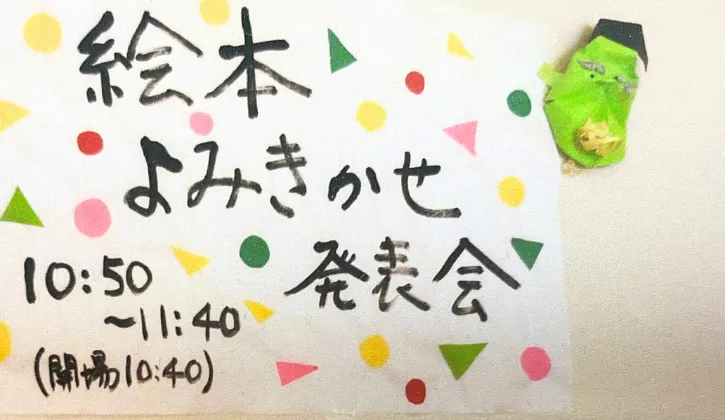 絵本
よみきかせ
発表会
10:50
~11:40
(開場10:40)